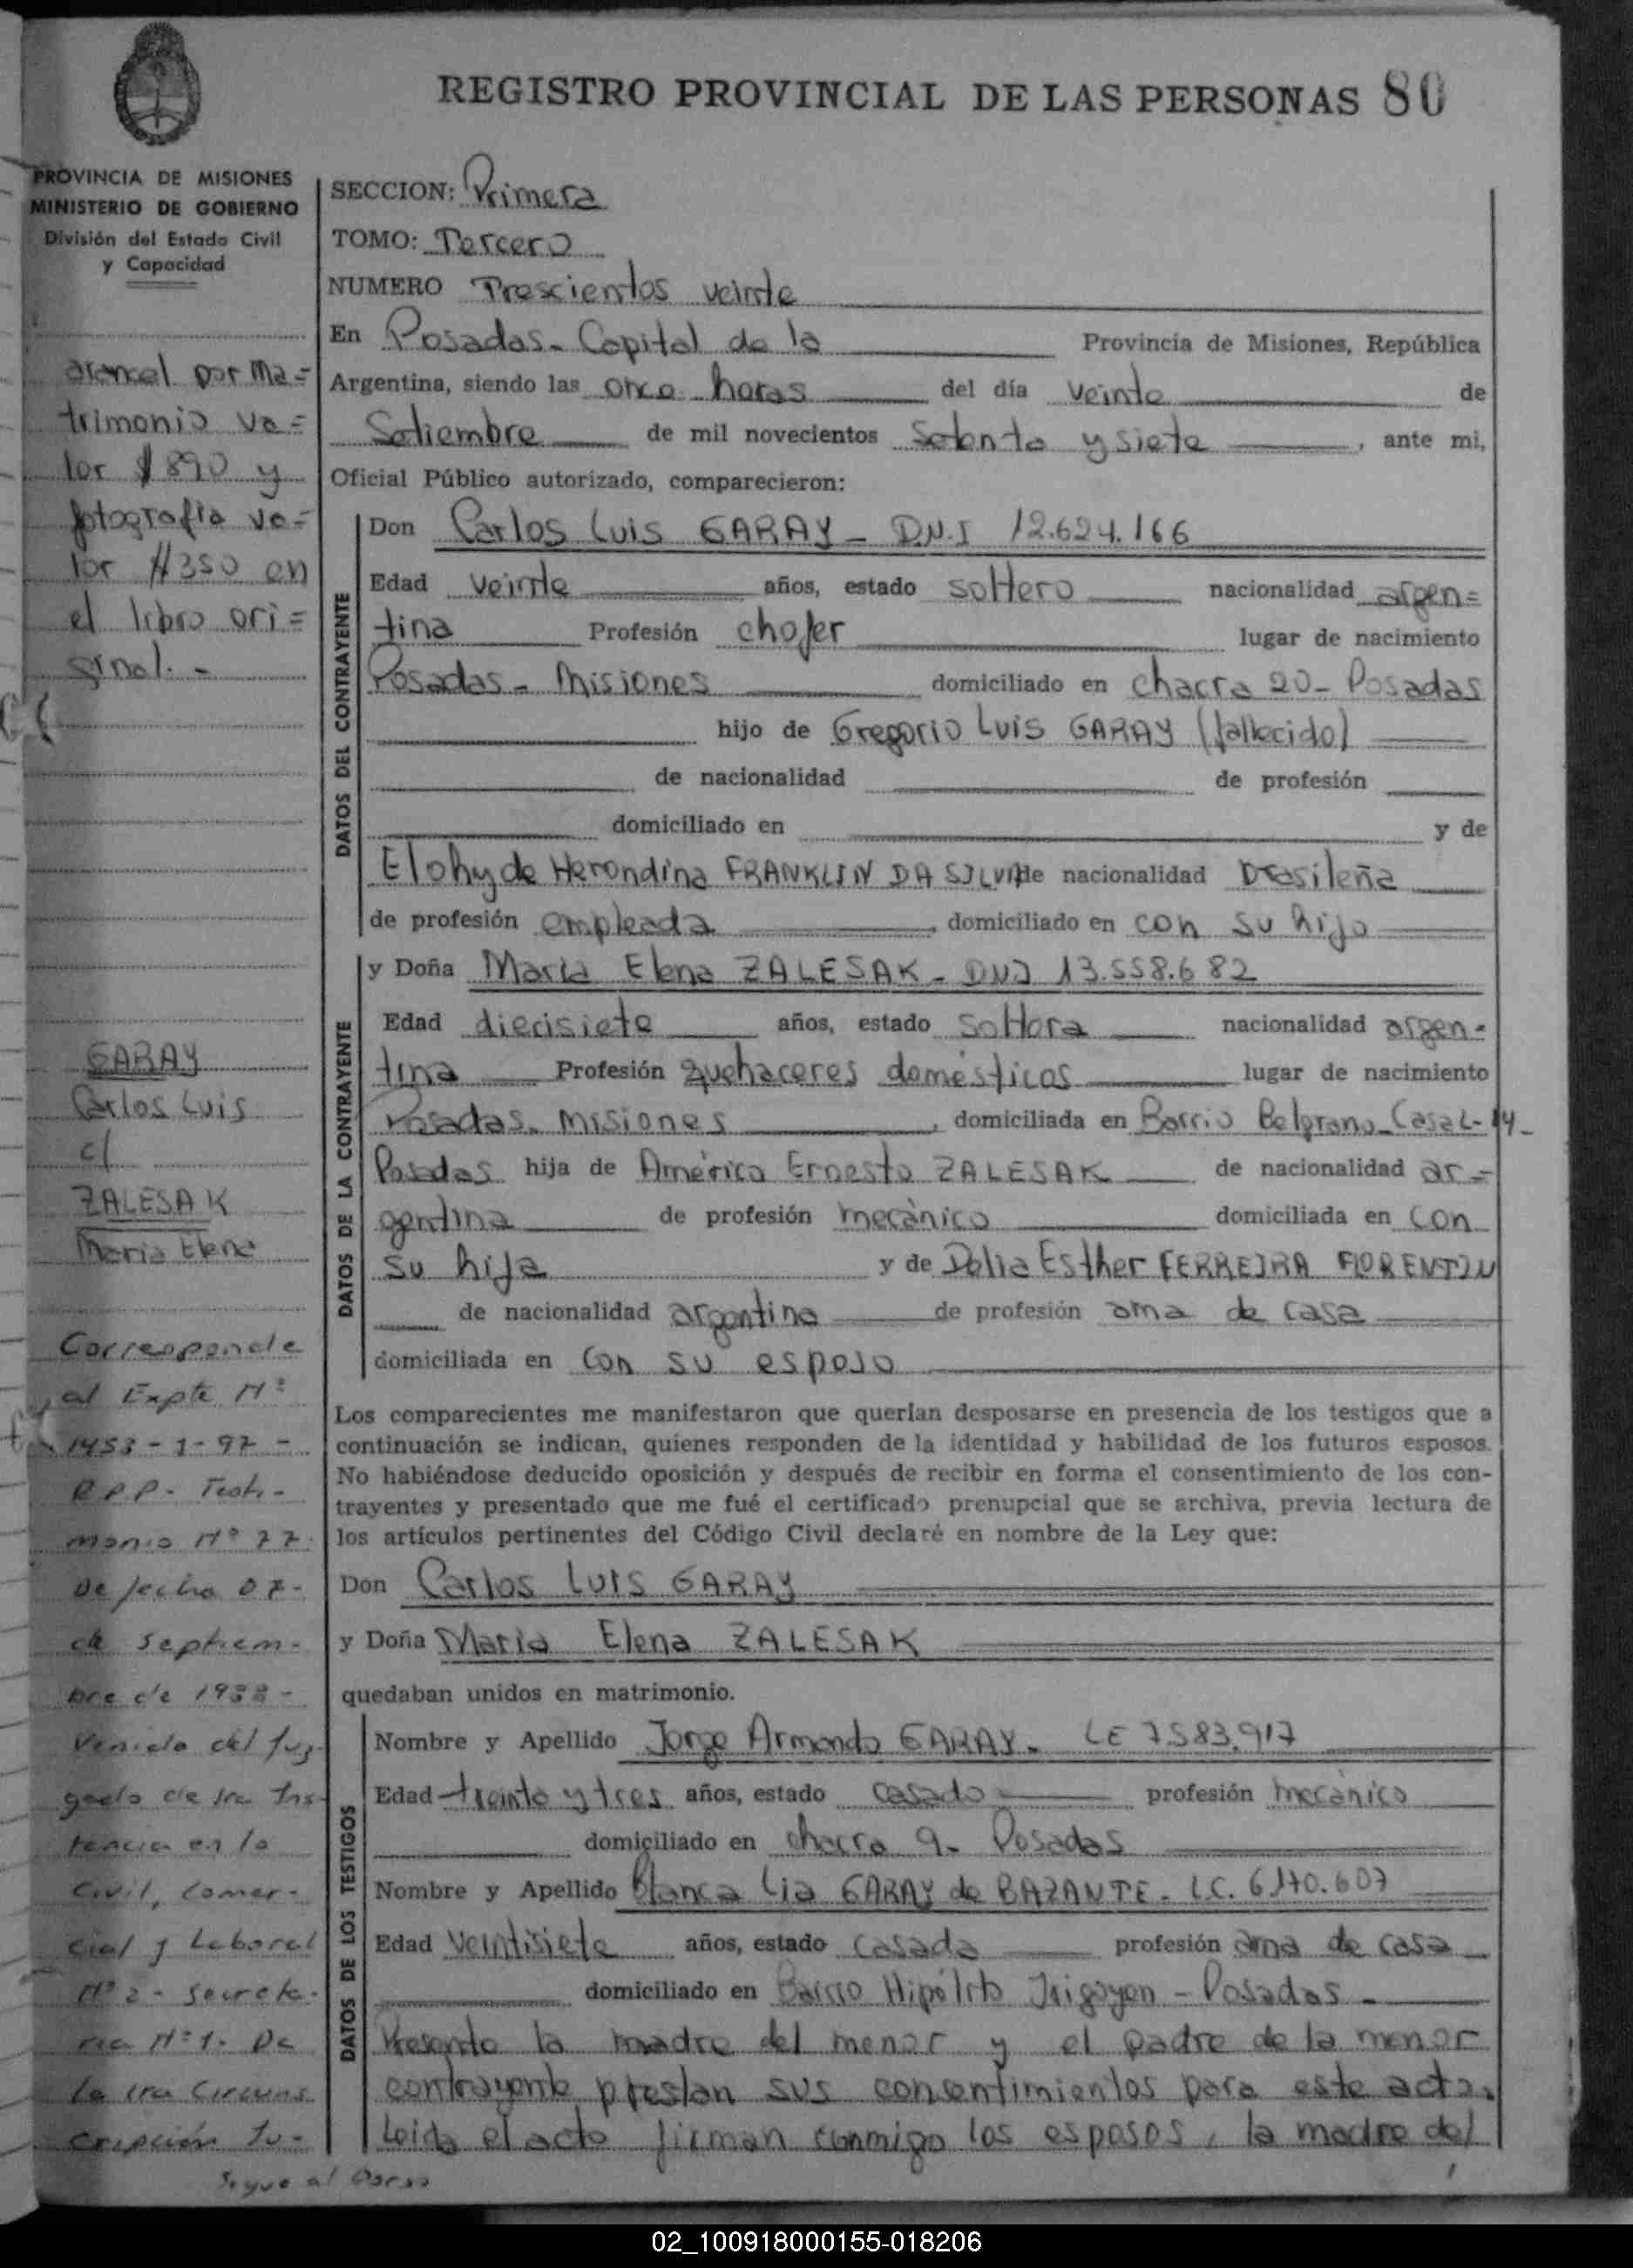 REGISTRO PROVINCIAL DE LAS PERSONAS 80
PROVINCIA DE MISIONES
MINISTERIO DE GOBIERNO
División del Estado Civil
y Capacidad
arancel por ma=
trimonio va=
lor $890 y
fotografía va=
lor $350 en
el libro ori=
ginal.-
GARAY
Carlos Luis
c/
ZALESAK
María Elena
Corresponde
al Expte Nº
1453-1-97-
R.P.P. Testi-
monio Nº 77
de fecha 07-
de septiem-
bre de 1988-
Venido del Juz-
gado de 1ra Ins-
tancia en lo
Civil, Comer-
cial y Laboral
Nº 2 - Secreta-
ria Nº 1. De
la 1ra Circuns
cripción Ju-
Sigue al Dorso
SECCION: Primera
TOMO: Tercero
NUMERO Trescientos veinte
En Posadas- Capital de la Provincia de Misiones, República
Argentina, siendo las once horas del día veinte de
Setiembre de mil novecientos Setenta y siete, ante mi,
Oficial Público autorizado, comparecieron:
DATOS DEL CONTRAYENTE
Don Carlos Luis GARAY - D.N.I 12.624.166
Edad veinte años, estado soltero nacionalidad argen=
tina Profesión chofer lugar de nacimiento
Posadas- Misiones domiciliado en chacra 20- Posadas
hijo de Gregorio Luis GARAY (fallecido)
de nacionalidad de profesión
domiciliado en y de
Elohyde Herondina FRANKLIN DA SILVA de nacionalidad brasileña
de profesión empleada, domiciliado en con su hijo
DATOS DE LA CONTRAYENTE
y Doña María Elena ZALESAK- DNI 13.558.682
Edad diecisiete años, estado soltera nacionalidad argen-
tina Profesión quehaceres domésticos lugar de nacimiento
Posadas. Misiones, domiciliada en Barrio Belgrano-Casa L-14-
Posadas hija de Américo Ernesto ZALESAK de nacionalidad ar=
gentina de profesión mecánico domiciliada en con
su hija y de Delia Esther FERREIRA FLORENTIN
de nacionalidad argentina de profesión ama de casa
domiciliada en con su esposo
Los comparecientes me manifestaron que querían desposarse en presencia de los testigos que a
continuación se indican, quienes responden de la identidad y habilidad de los futuros esposos.
No habiéndose deducido oposición y después de recibir en forma el consentimiento de los con-
trayentes y presentado que me fué el certificado prenupcial que se archiva, previa lectura de
los artículos pertinentes del Código Civil declaré en nombre de la Ley que:
Don Carlos Luis GARAY
y Doña María Elena ZALESAK
quedaban unidos en matrimonio.
DATOS DE LOS TESTIGOS
Nombre y Apellido Jorge Armando GARAY- LE 7583.917
Edad treinta y tres años, estado casado profesión mecánico
domiciliado en chacra 9- Posadas
Nombre y Apellido Blanca Lia GARAY de BAZANTE- L.C. 6.170.607
Edad veintisiete años, estado casada profesión ama de casa
domiciliado en Barrio Hipólito Irigoyen - Posadas-
Presente la madre del menor y el padre de la menor
contrayente prestan sus consentimientos para este acto.
Leida el acto firman conmigo los esposos, la madre del
02_100918000155-018206